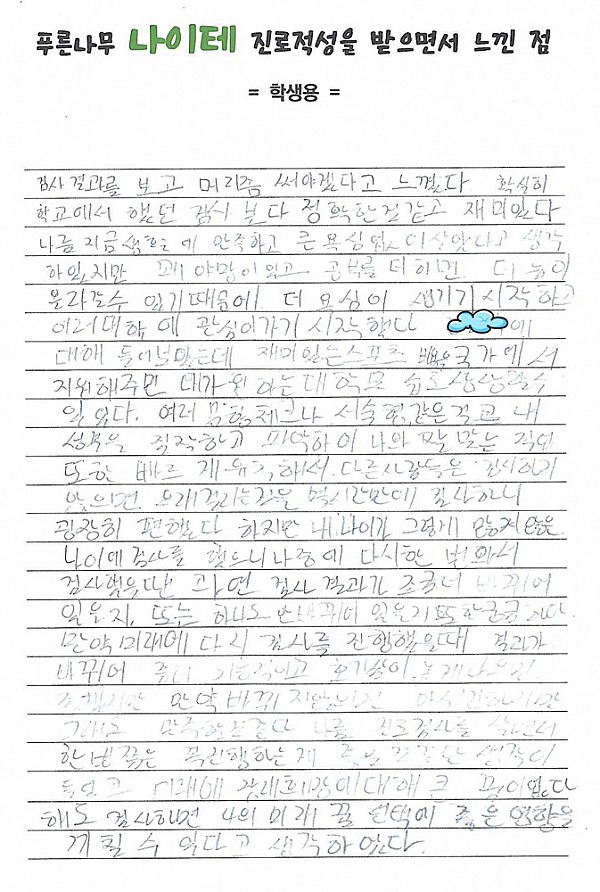 푸른나무 나이테 진로적성을 받으면서 느낀 점
= 학생용 =
검사 결과를 보고 머리좀 써야겠다고 느꼈다 확실히
학교에서 했던 검사 보다 정확한것같고 재미있다
나름 지금생활에 만족하고 큰 욕심없이 살았다고 생각
하였지만 꽤 야망이있고 공부를 더하면 더 높이
올라갈수 있기때문에 더 욕심이 생기기시작하고
여러대학에 관심이가기 시작했다 에
대해 들어보았는데 재미있는스포츠 국가에서
지원해주면 내가 원하는대학문 상상할수
있었다. 여러 체크나 서술형같은걸하고 내
성격을 직작하고 파악하여 나와 딱맞는 직업
또한 빠르게 해서 다른사람들은 검사하기
않으면 오래걸리는것을 몇시간만에 검사하니
굉장히 편했다 하지만 내나이가 그렇게 많지않은
나이에 검사를 했으니 나중에 다시한 번 와서
검사했을때 과연 검사결과가 조금더 바뀌어
있을지, 또는 하나도 안바뀌어 있을지 또한 궁금하다.
만약 미래에 다시 검사를 진행했을때 결과가
바뀌어
만약 바뀌지않았다면
그래도 만족할것같다 나름 진로검사를 하면서
한번쯤은 꼭진행하는게 생각이
들었고 미래에 장래희망에대해 큰 꿈이없다
해도 검사하면 나의 미래 꿈 선택에 좋은 영향을
끼칠 수 있다고 생각하였다.